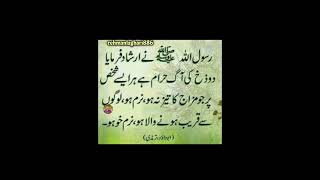 rehmanlaghari886
رسول اللہ ﷺ نے ارشاد فرمایا
دوذخ کی آگ حرام ہے ہر ایسے شخص
پر جو مزاج کا تیز نہ ہو، نرم ہو، لوگوں
سے قریب ہونے والا ہو، نرم خو ہو۔
(ابوداؤد، ترمذی)